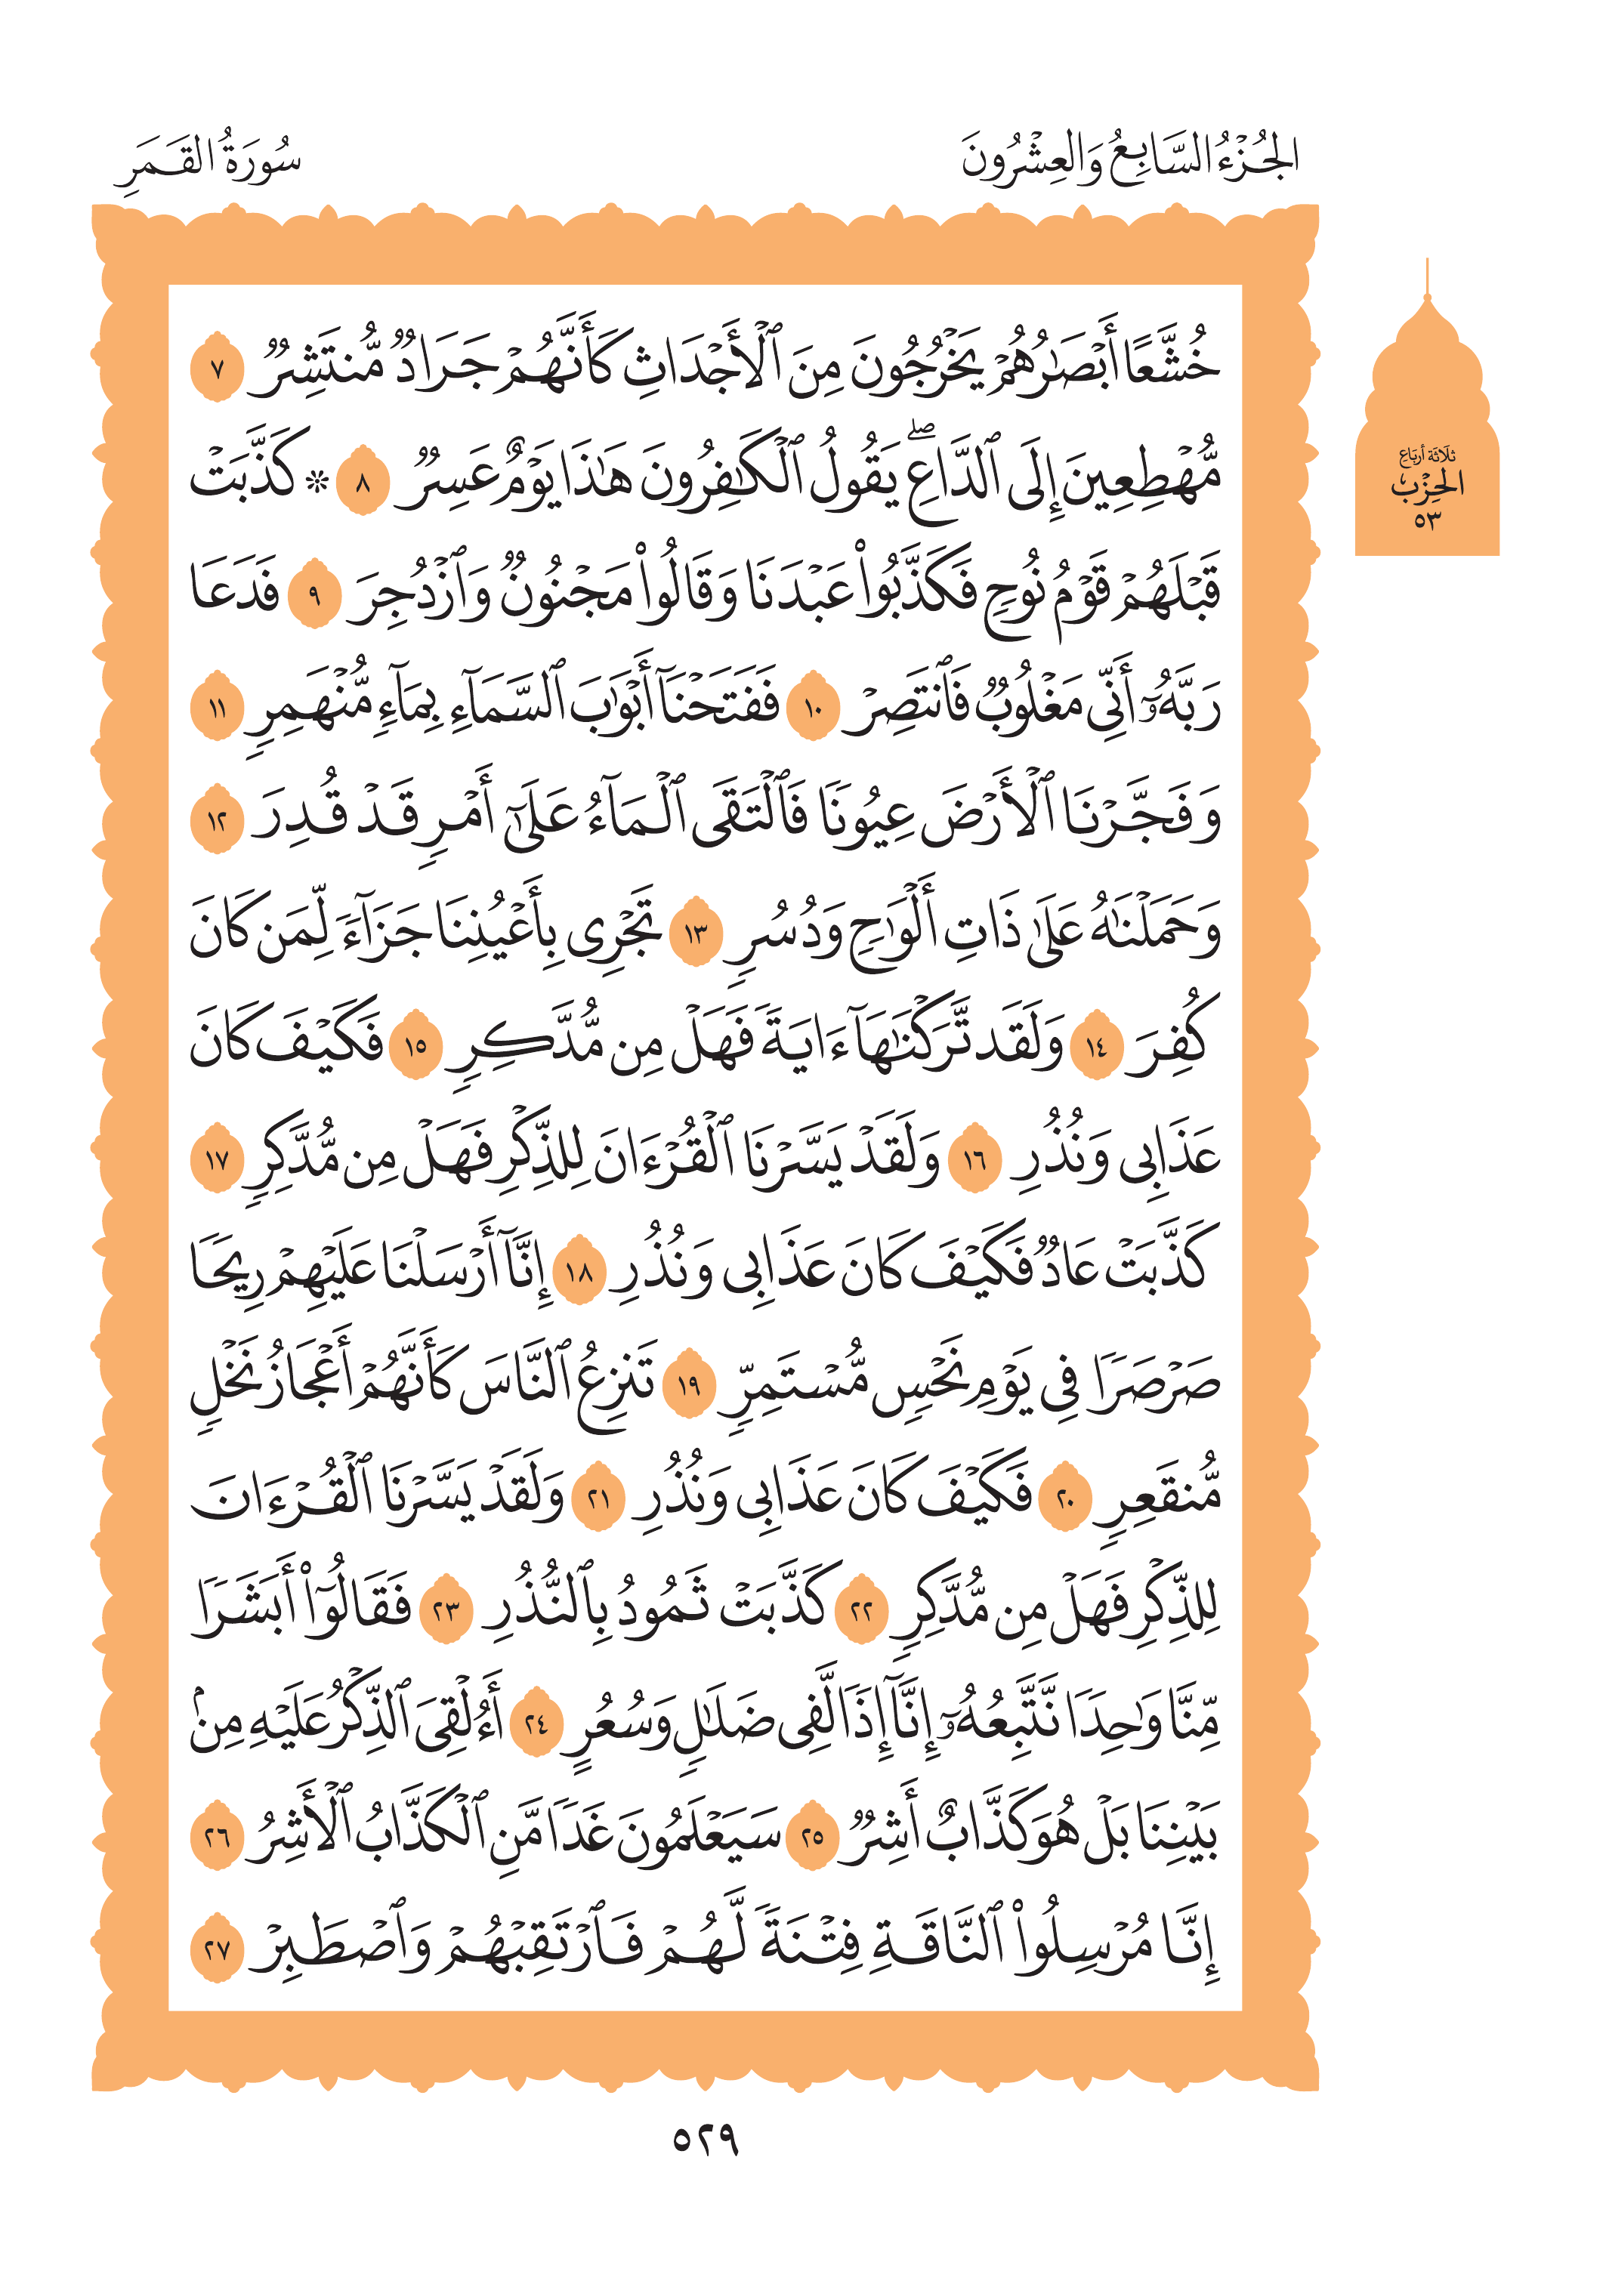 الجُزْءُ السَّابِعُ وَالعِشْرُونَ
سُورَةُ القَمَرِ
ثلاثة أرباع
الحِزْب
٥٣
خُشَّعًا أَبْصَٰرُهُمْ يَخْرُجُونَ مِنَ ٱلْأَجْدَاثِ كَأَنَّهُمْ جَرَادٌ مُّنتَشِرٌ ٧
مُّهْطِعِينَ إِلَى ٱلدَّاعِ ۖ يَقُولُ ٱلْكَٰفِرُونَ هَٰذَا يَوْمٌ عَسِرٌ ٨ ۞ كَذَّبَتْ
قَبْلَهُمْ قَوْمُ نُوحٍ فَكَذَّبُوا۟ عَبْدَنَا وَقَالُوا۟ مَجْنُونٌ وَٱزْدُجِرَ ٩ فَدَعَا
رَبَّهُۥٓ أَنِّى مَغْلُوبٌ فَٱنتَصِرْ ١٠ فَفَتَحْنَآ أَبْوَٰبَ ٱلسَّمَآءِ بِمَآءٍ مُّنْهَمِرٍ ١١
وَفَجَّرْنَا ٱلْأَرْضَ عُيُونًا فَٱلْتَقَى ٱلْمَآءُ عَلَىٰٓ أَمْرٍ قَدْ قُدِرَ ١٢
وَحَمَلْنَٰهُ عَلَىٰ ذَاتِ أَلْوَٰحٍ وَدُسُرٍ ١٣ تَجْرِى بِأَعْيُنِنَا جَزَآءً لِّمَن كَانَ
كُفِرَ ١٤ وَلَقَد تَّرَكْنَٰهَآ ءَايَةً فَهَلْ مِن مُّدَّكِرٍ ١٥ فَكَيْفَ كَانَ
عَذَابِى وَنُذُرِ ١٦ وَلَقَدْ يَسَّرْنَا ٱلْقُرْءَانَ لِلذِّكْرِ فَهَلْ مِن مُّدَّكِرٍ ١٧
كَذَّبَتْ عَادٌ فَكَيْفَ كَانَ عَذَابِى وَنُذُرِ ١٨ إِنَّآ أَرْسَلْنَا عَلَيْهِمْ رِيحًا
صَرْصَرًا فِى يَوْمِ نَحْسٍ مُّسْتَمِرٍّ ١٩ تَنزِعُ ٱلنَّاسَ كَأَنَّهُمْ أَعْجَازُ نَخْلٍ
مُّنقَعِرٍ ٢٠ فَكَيْفَ كَانَ عَذَابِى وَنُذُرِ ٢١ وَلَقَدْ يَسَّرْنَا ٱلْقُرْءَانَ
لِلذِّكْرِ فَهَلْ مِن مُّدَّكِرٍ ٢٢ كَذَّبَتْ ثَمُودُ بِٱلنُّذُرِ ٢٣ فَقَالُوٓا۟ أَبَشَرًا
مِّنَّا وَٰحِدًا نَّتَّبِعُهُۥٓ إِنَّآ إِذًا لَّفِى ضَلَٰلٍ وَسُعُرٍ ٢٤ أَءُلْقِىَ ٱلذِّكْرُ عَلَيْهِ مِنۢ
بَيْنِنَا بَلْ هُوَ كَذَّابٌ أَشِرٌ ٢٥ سَيَعْلَمُونَ غَدًا مَّنِ ٱلْكَذَّابُ ٱلْأَشِرُ ٢٦
إِنَّا مُرْسِلُوا۟ ٱلنَّاقَةِ فِتْنَةً لَّهُمْ فَٱرْتَقِبْهُمْ وَٱصْطَبِرْ ٢٧
٥٢٩